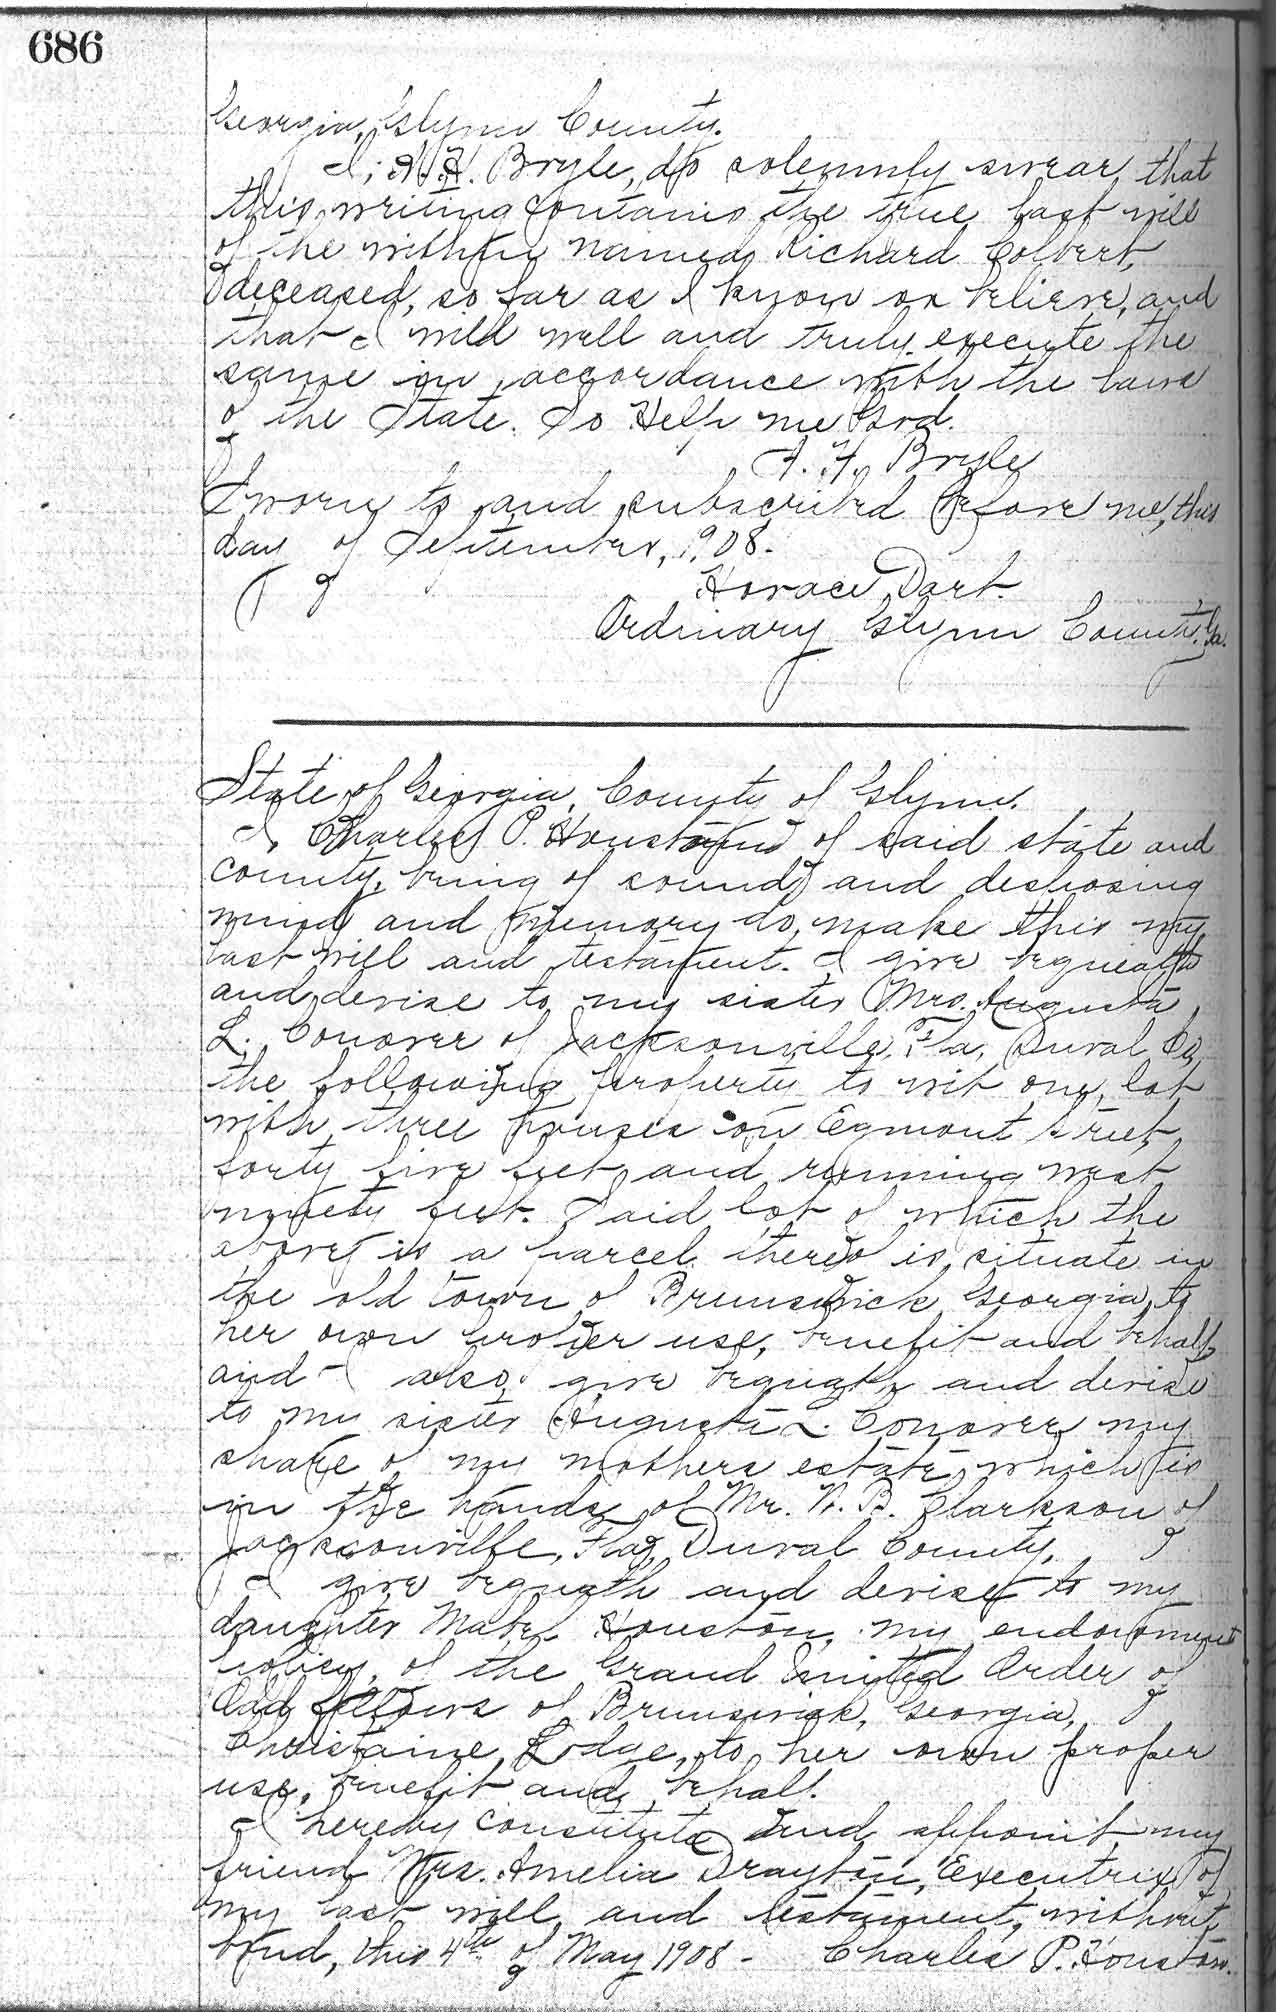 686
Georgia, Glynn County.
I, A. H. Bryle, do solemnly swear that
this writing contains the true last will
of the within named Richard Colbert,
deceased, so far as I know or believe, and
that I will well and truly execute the
same in accordance with the laws
of the State. So Help me God.
Bryle
Sworn to and subscribed before me, this
day of September, 1908.
Horace Dart.
Ordinary Glynn County, Ga.
State of Georgia, County of Glynn.
I, Charles P. Houston of said state and
county, being of sound and desposing
mind and memory do make this my
last will and testament. I give bequeath
and devise to my sister Mrs. Augusta
L. Conover of Jacksonville, Fla, Duval Co,
the following property to wit one lot
with three houses on Egmont street,
forty five feet and running west
ninety feet. Said lot of which the
above is a parcel thereof is situate in
the old town of Brunswick Georgia to
her own proper use, benefit and behalf,
and I also give bequath and devise
to my sister Augusta L. Conover my
share of my mothers estate which is
in the hands of Mr. N. B. Clarkson of
Jacksonville, Fla, Duval County.
I give bequath and devise to my
daughter Mabel Houston, my endowment
policy, of the Grand United Order of
Odd fellows of Brunswick, Georgia,
Christaine Lodge, to her own proper
use, benefit and behalf.
I hereby constitute and appoint my
friend Mrs. Amelia Drayton, Executrix of
my last will and testament, without
bond, this 4th of May 1908 - Charles P. Houston.